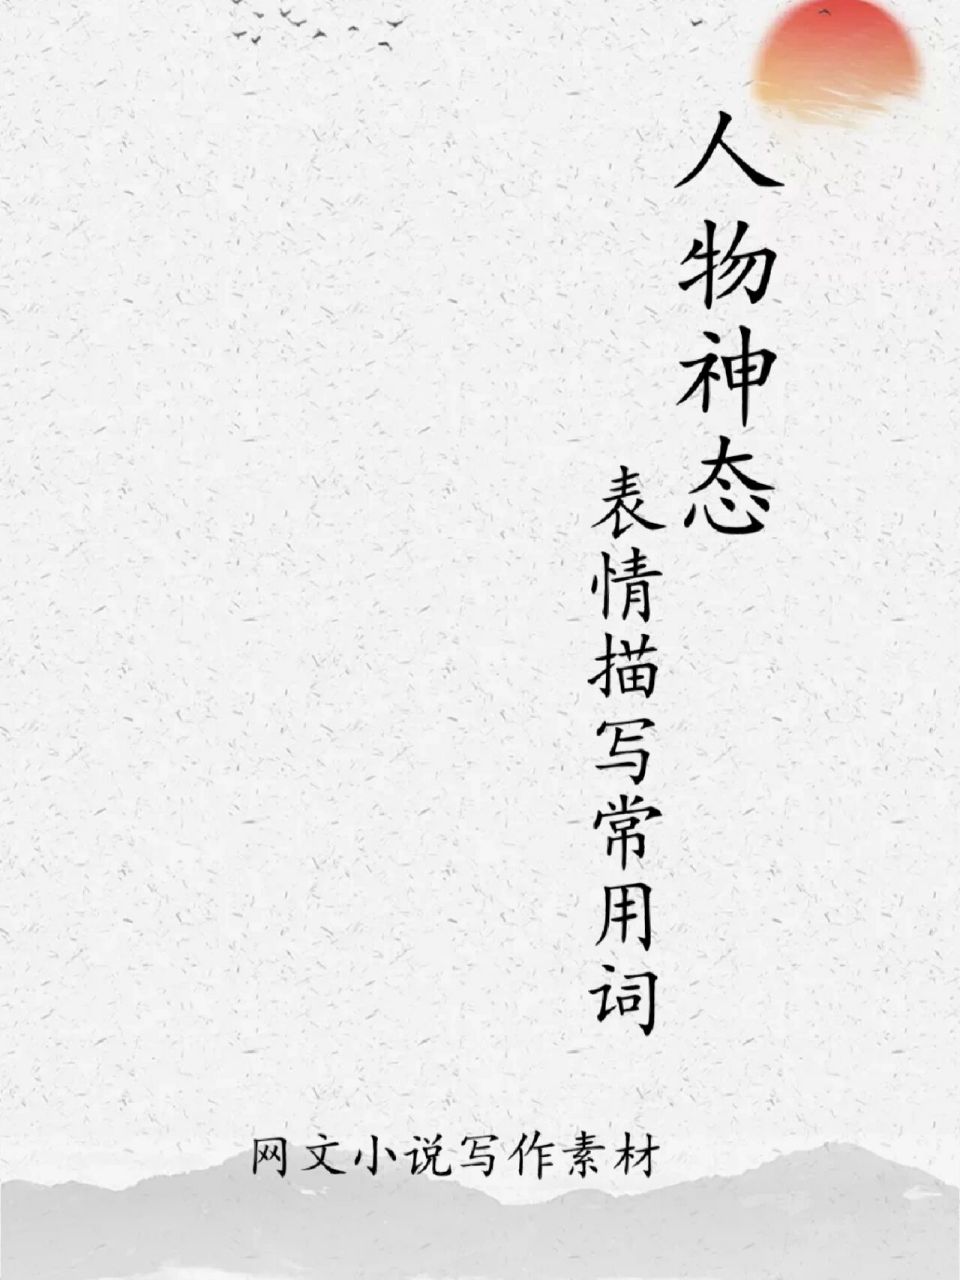 人物神态
表情描写常用词
网文小说写作素材